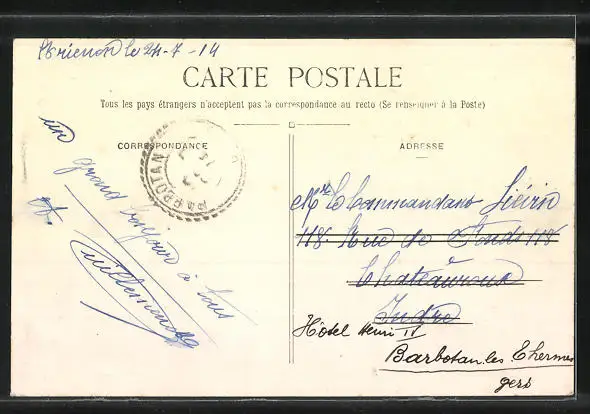 Brienon le 24-7-14
CARTE POSTALE
Tous les pays étrangers n'acceptent pas la correspondance au recto (Se renseigner à la Poste)
CORRESPONDANCE
ADRESSE
BARBOTAN
un
grand bonjour à tous
Mr le Commandant
118. Rue de 118
Châteauroux
Indre
Hôtel Henri IV
Barbotan les Thermes
gers